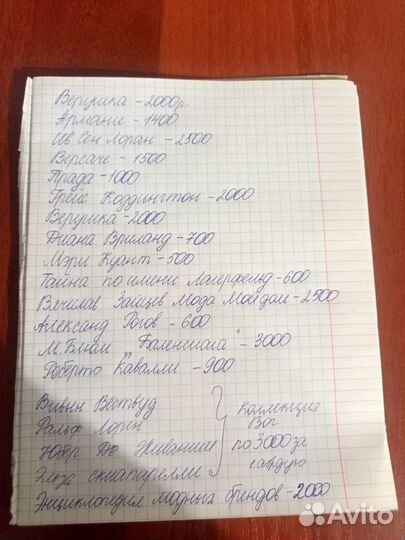 Верушка - 2000р.
Армани - 1400
Ив Сен Лоран - 2500
Версаче - 1500
Прада - 1000
Грейс Коддингтон - 2000
Верушка - 2000
Диана Вриланд - 700
Мэри Куант - 500
Тайна по имени Лагерфельд - 600
Вячеслав Зайцев Мода Мой дом - 2500
Александ Рогов - 600
М. Блюм "Баленсиага" - 3000
Роберто Кавалли - 900
Вивьн Вествуд
Ральф Лорен
Юбер Де Живанши
Эльза скиапарелли
коллекция
Вог
по 3000 за
каждую
Энциклопедия модных брендов - 2000
Avito